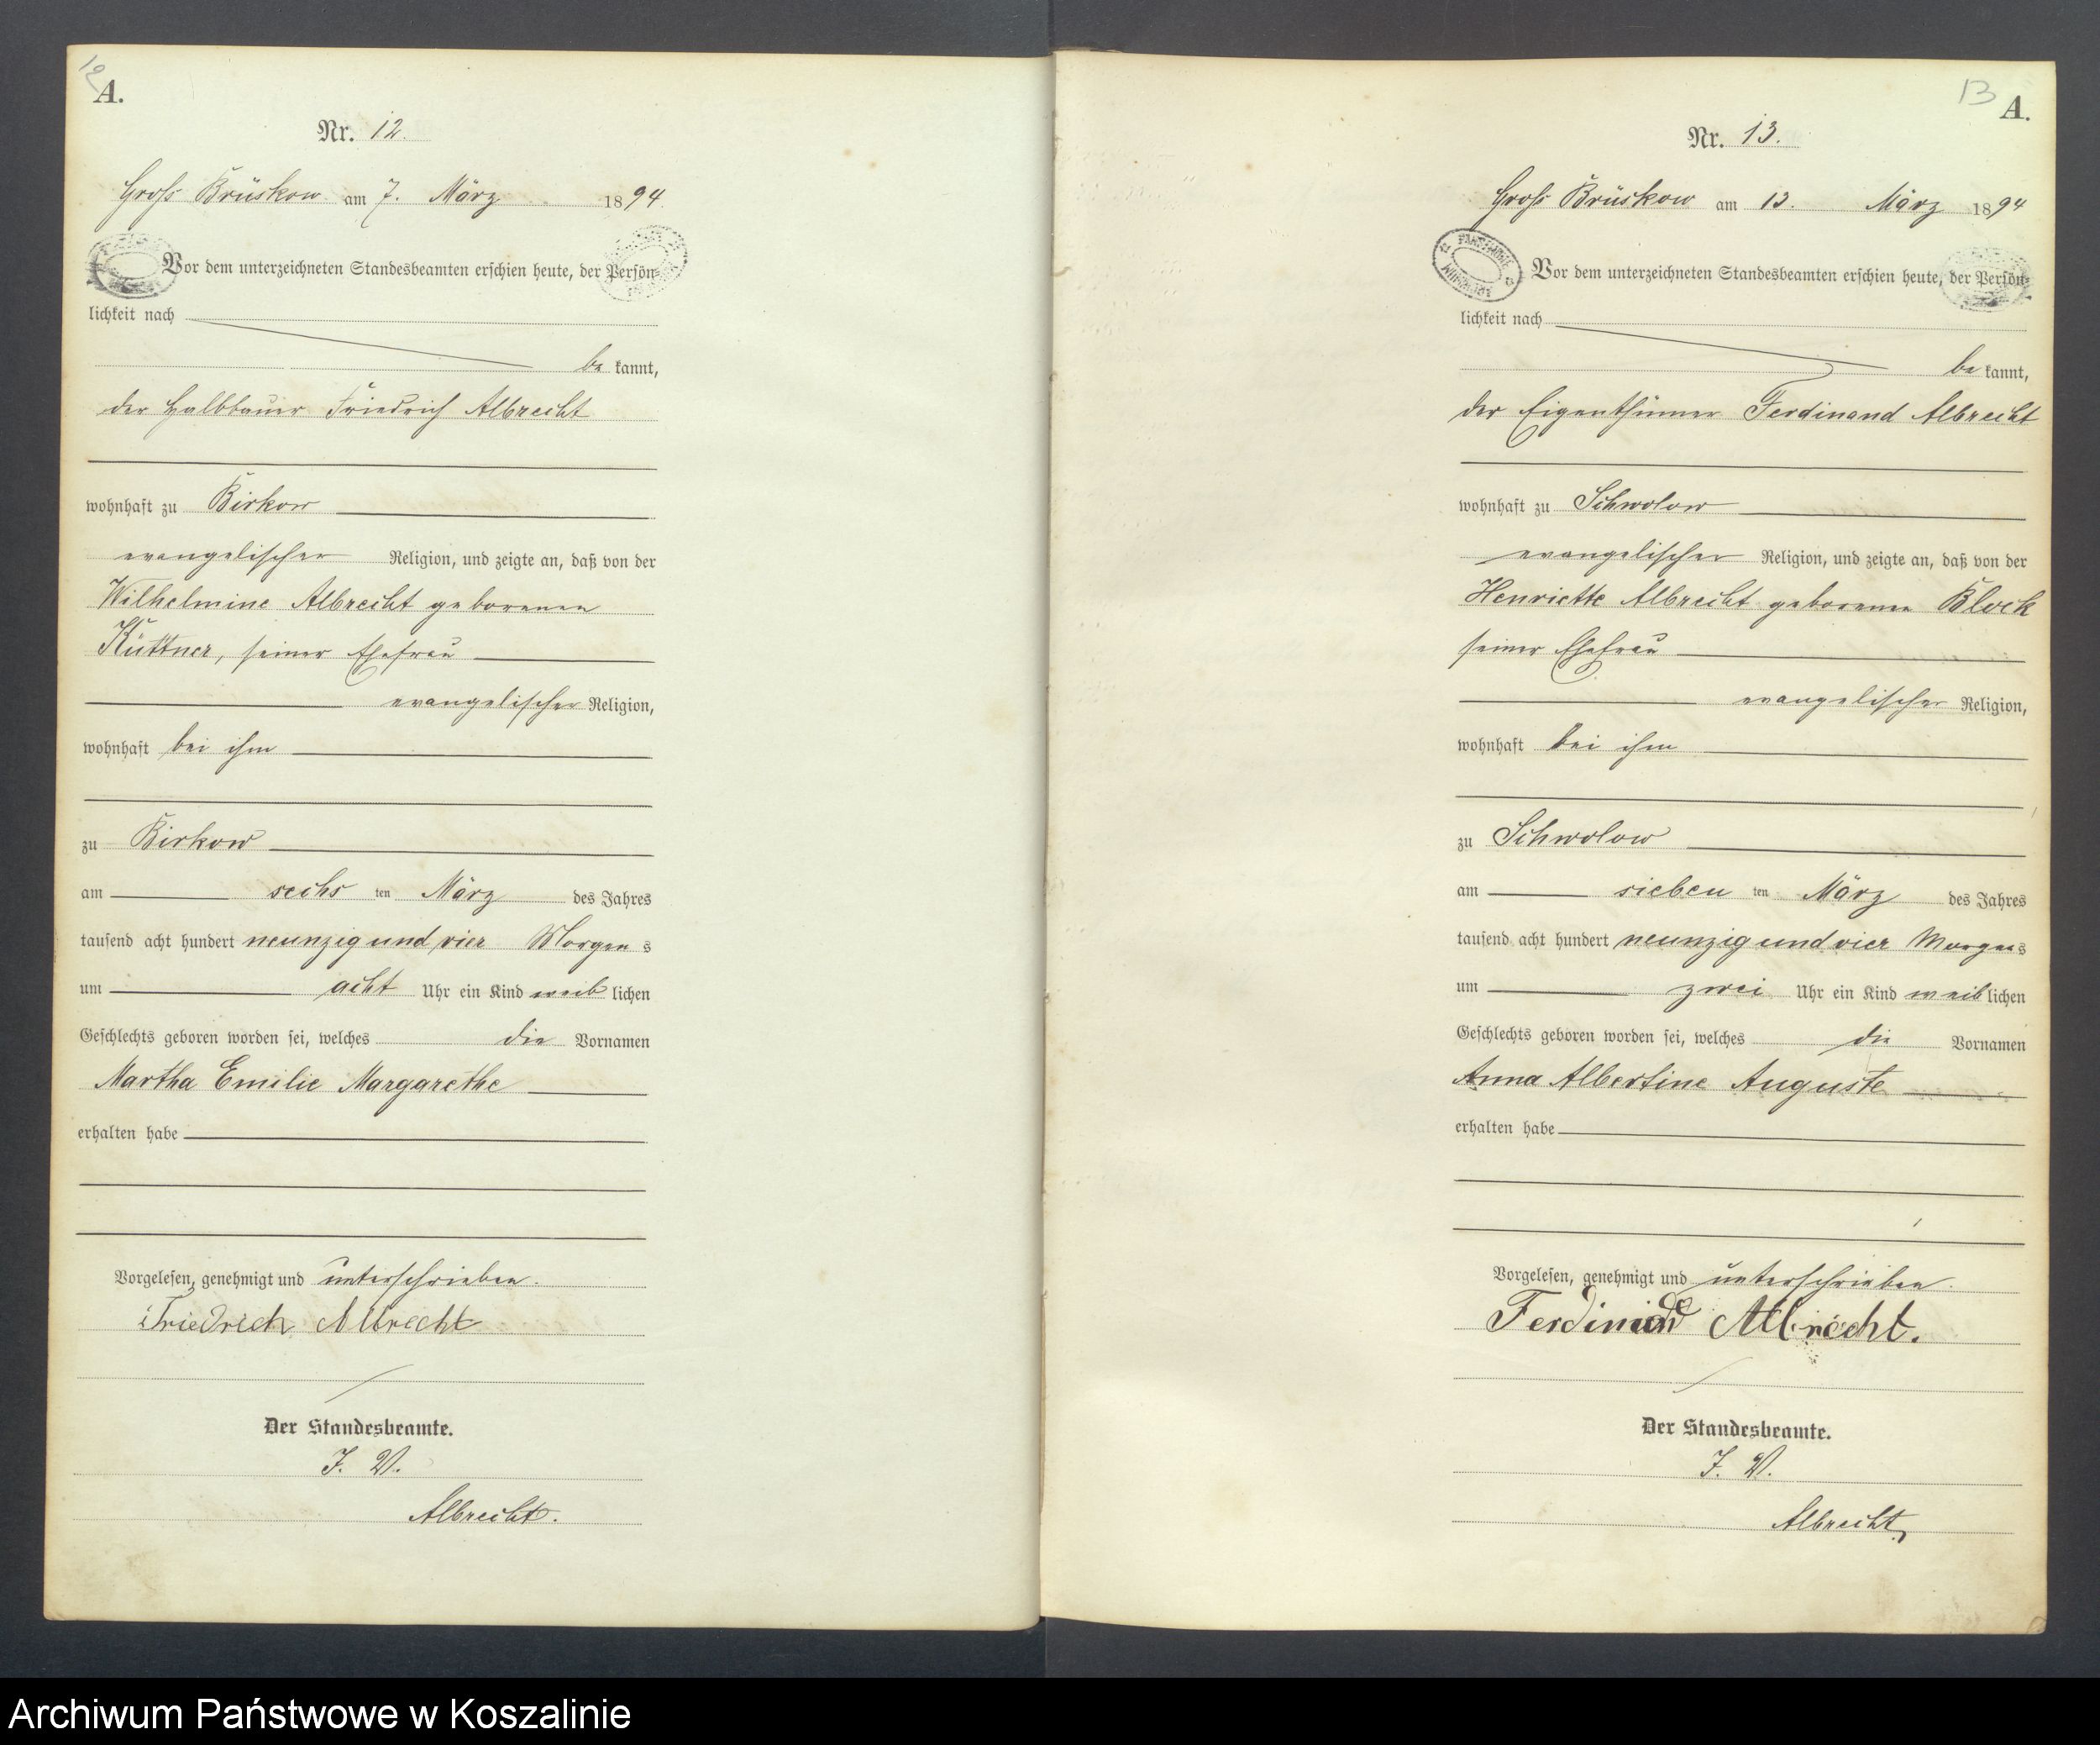 12
A.
Nr. 12.
Groß Brüskow am 7. März 1894.
Vor dem unterzeichneten Standesbeamten erschien heute, der Persön-
lichkeit nach
be kannt,
der Halbbauer Friedrich Albrecht
wohnhaft zu Birkow
evangelischer Religion, und zeigte an, daß von der
Wilhelmine Albrecht geborenen
Küttner, seiner Ehefrau
evangelischer Religion,
wohnhaft bei ihm
zu Birkow
am sechs ten März des Jahres
tausend acht hundert neunzig und vier Morgens
um acht Uhr ein Kind weiblichen
Geschlechts geboren worden sei, welches die Vornamen
Martha Emilie Margarethe
erhalten habe
Vorgelesen, genehmigt und unterschrieben.
Friedrich Albrecht
Der Standesbeamte.
J. V.
Albrecht.
13
A.
Nr. 13.
Groß Brüskow am 13. März 1894
Vor dem unterzeichneten Standesbeamten erschien heute, der Persön-
lichkeit nach
be kannt,
der Eigenthümer Ferdinand Albrecht
wohnhaft zu Schwolow
evangelischer Religion, und zeigte an, daß von der
Henriette Albrecht geborenen Block
seiner Ehefrau
evangelischer Religion,
wohnhaft bei ihm
zu Schwolow
am sieben ten März des Jahres
tausend acht hundert neunzig und vier Morgens
um zwei Uhr ein Kind weiblichen
Geschlechts geboren worden sei, welches die Vornamen
Anna Albertine Auguste
erhalten habe
Vorgelesen, genehmigt und unterschrieben.
Ferdinand Albrecht.
Der Standesbeamte.
J. V.
Albrecht.
Archiwum Państwowe w Koszalinie